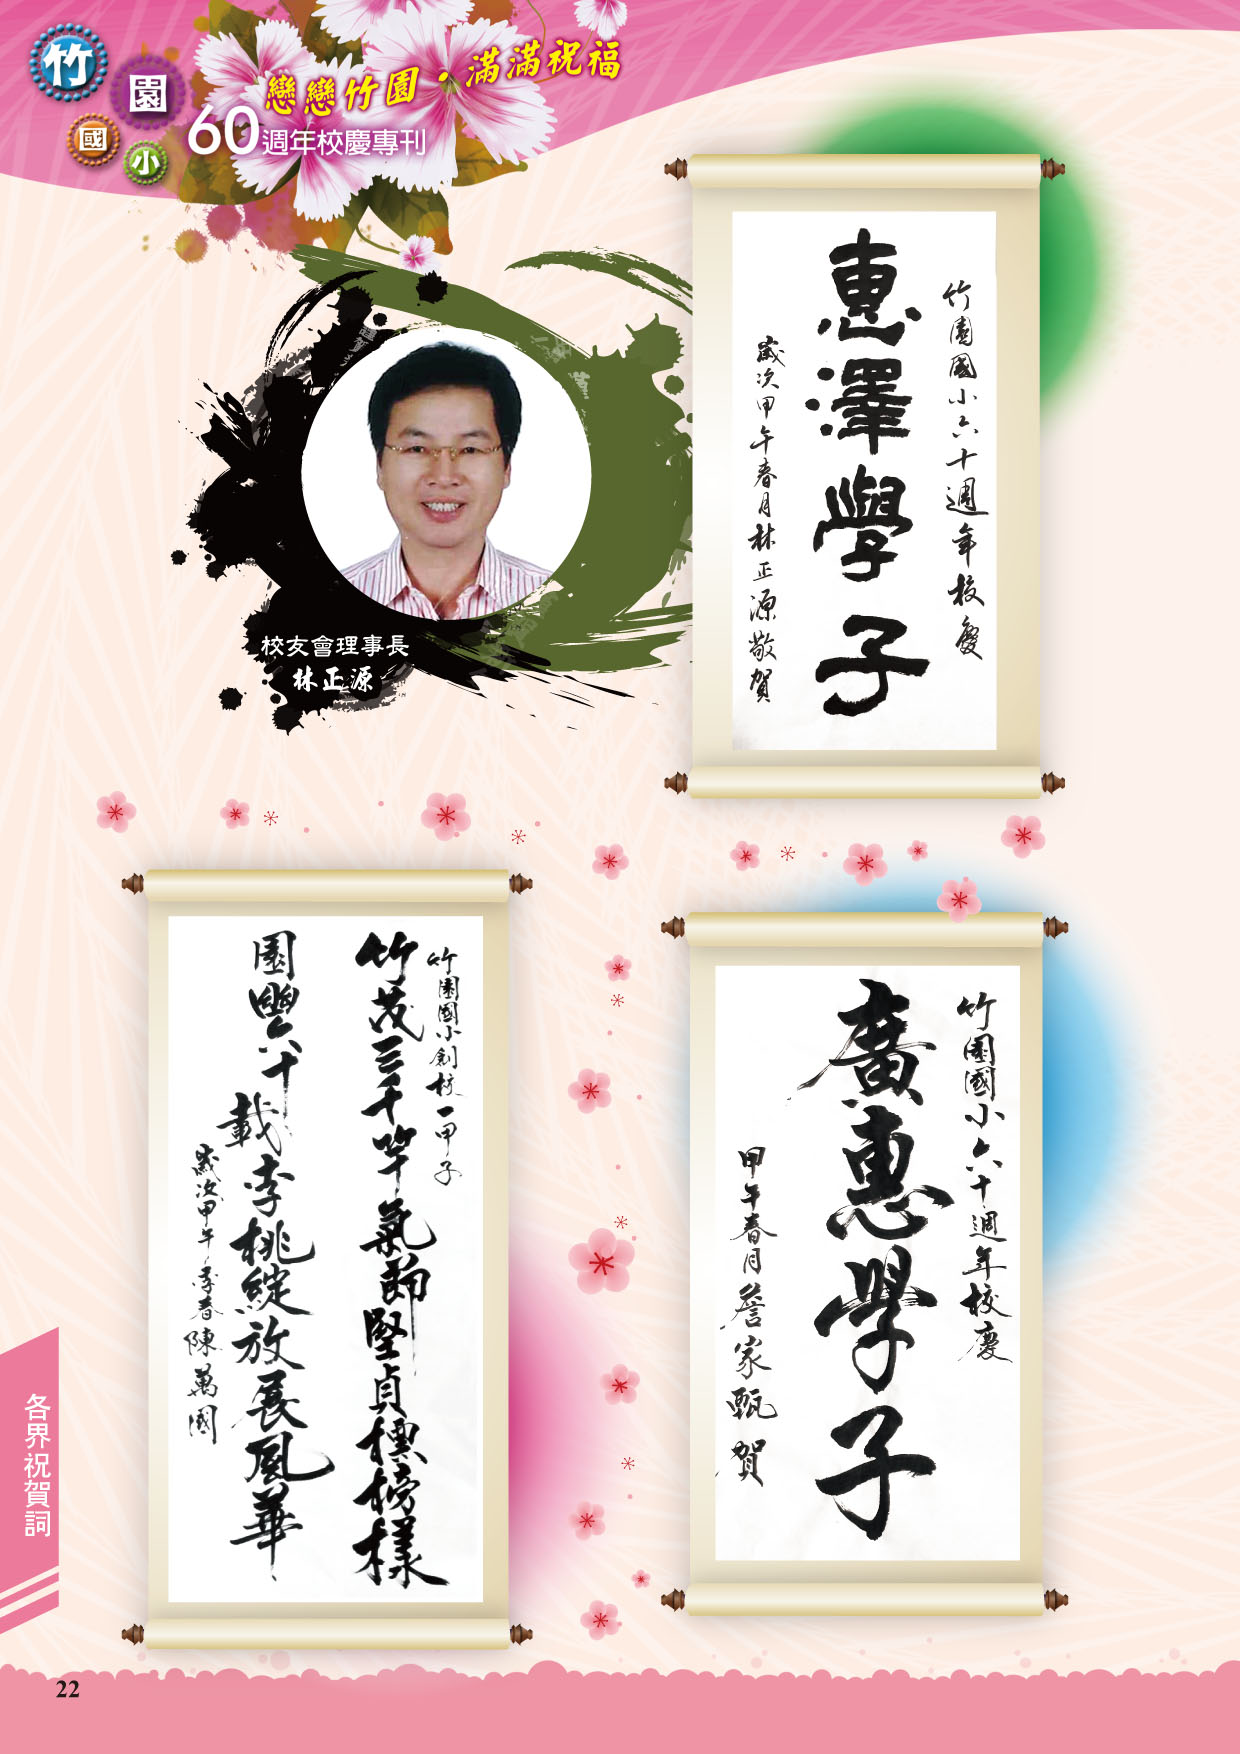 竹園國小
戀戀竹園・滿滿祝福
60週年校慶專刊
校友會理事長
林正源
竹園國小六十週年校慶
惠澤學子
歲次甲午春月林正源敬賀
竹園國小創校一甲子
竹茂三千竿氣節堅貞標榜樣
園興六十載李桃綻放展風華
歲次甲午季春陳萬國
竹園國小六十週年校慶
廣惠學子
甲午春月詹家甄賀
各界祝賀詞
22